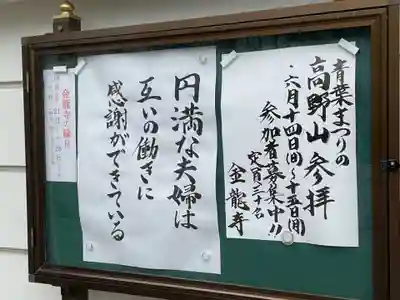 青葉まつりの
高野山参拝
・六月十四日(日)〜十五日(月)
参加者募集中!!
定員三十名
金龍寺
円満な夫婦は
互いの働きに
感謝ができている
金龍寺の縁日